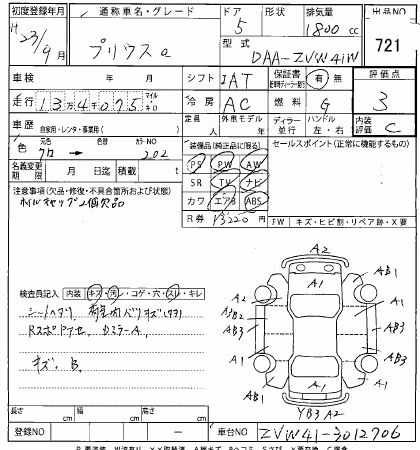 初度登録年月 通称車名・グレード ドア 形状 排気量 出品NO
H23/9月 プリウスα 5 1800cc 721
型式 DAA-ZVW41W
車検 年 月 シフト IAT 保証書 有 無 評価点
走行 134075 マイル・キロ 冷房 AC 燃料 G 3
車歴 自家用・レンタ・事業用( ) 定員 人 外車モデル 年 ディーラー 並行 ハンドル 左・右 内装評価 C
色 元色 クロ → 色替 カラーNO 202 装備品(純正品に限る) セールスポイント(正常に機能するもの)
名義変更期限 月 日迄 積載 t PS PW AW
SR TV ナビ
カワ エアB ABS
注意事項(欠品・修復・不具合箇所および状態)
ホイルキャップ2個欠品
R券 ¥13220円
FW キズ・ヒビ割・リペア跡・X要
検査員記入 内装 キズ・汚レ・コゲ・穴・スレ・キレ
シートヘタリ
キズ、B
A2
AB1 A1 AB1
A2 A2
AB2
AB3 AB3
A1 A1
AB1 A1 AB3
YB3 A2
長さ cm 幅 cm 高さ cm
登録NO — 車台NO ZVW41-3012706